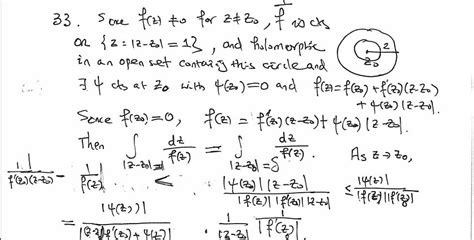 33. Since f(z) ≠ 0 for z ≠ z₀, 1/f is cts
on {z : |z-z₀| = 1}, and holomorphic
in an open set containing this circle and
∃ ψ cts at z₀ with ψ(z₀) = 0 and f(z) = f(z₀) + f'(z₀)(z-z₀)
+ ψ(z)|z-z₀|.
Since f(z₀) = 0, f(z) = f'(z₀)(z-z₀) + ψ(z)|z-z₀|.
Then ∫_{|z-z₀|=1} dz/f(z) = ∫_{|z-z₀|=δ} dz/f(z). As z → z₀,
|1/(f'(z₀)(z-z₀)) - 1/f(z)| ≤ |ψ(z)||z-z₀| / |f(z)||f'(z₀)||z-z₀| ≤ |ψ(z)| / |f(z)||f'(z₀)|
= |ψ(z)| / · 1/|z-z₀| · 1/|f'(z₀)|